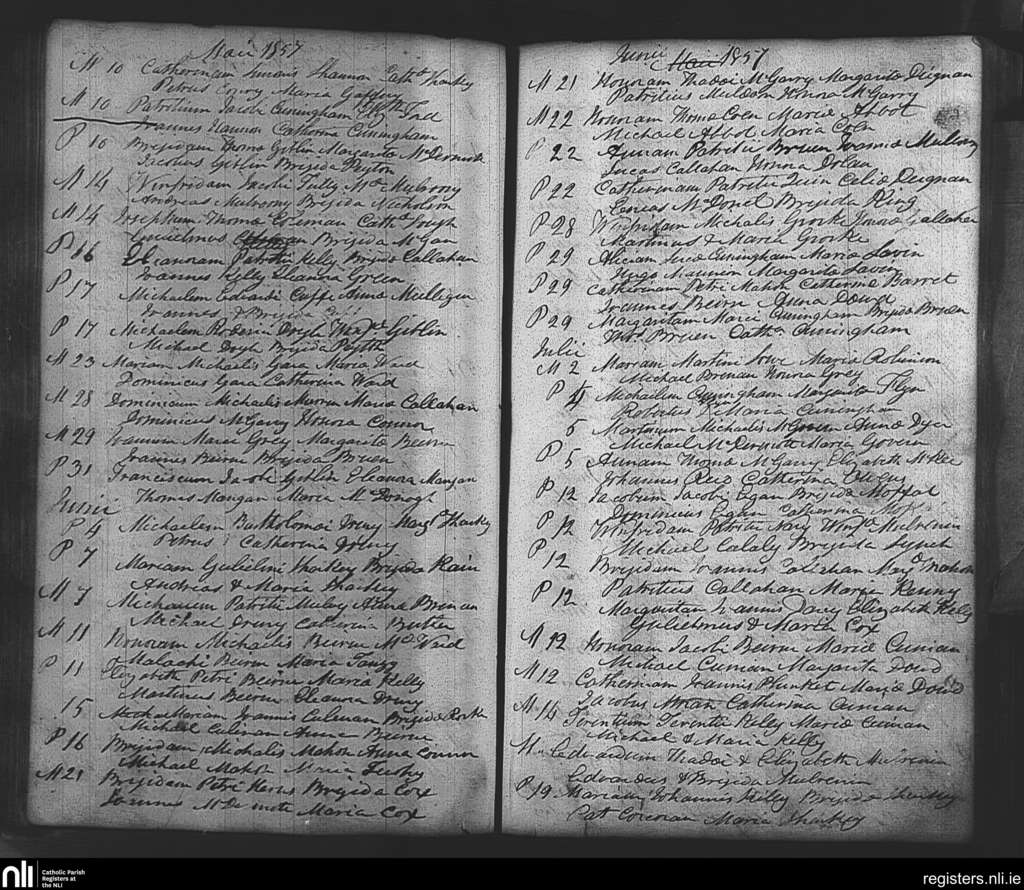 Maii 1857
M 10 Catherinam Shannon Sharkey
Petrus Maria Gaffney
M 10 Patritium Jacobi Cuningham Eliz
Joannes Hannon Catherina Cuningham
P 10 Brigidam Thoma Giblin Margarita McDermott
Jacobus Giblin Brigida Peyton
M 14 Winfridam Jacobi Tully Mulvony
Andreas Mulvony Brigida Nicholson
M 14 Josephum Thoma Coleman Cath
Gulielmus Brigida McGan
P 16 Eleanoram Patritii Kelly Brigida Callahan
Joannes Kelly Eleanora Green
P 17 Michaelem Edvardi Cuffe Anna Mulligan
Joannes & Brigida
P 17 Michaelem Giblin
Michael Brigida Peyton
M 23 Mariam Michaelis Gara Maria Ward
Dominicus Gara Catherina Ward
M 28 Dominicum Michaelis Maria Callahan
Dominicus McGarry Honora Connor
M 29 Marci Grey Margarita Beirn
Joannes Beirne Brigida Bruen
P 31 Franciscum Jacobi Giblin Eleanora Mangan
Thomas Mangan Maria McDonogh
Junii
P 4 Michaelem Bartholomai Drury Marg Sharkey
Petrus & Catherina Drury
P 7 Mariam Gulielmi Sharkey Brigida Kain
Andreas & Maria Sharkey
M 7 Michaelem Patritii Anna Brenan
Michael Drury Catherina Butler
M 11 Honoram Michaelis Beirne Ward
Malachi Beirn Maria
P 11 Elizabeth Petri Beirne Maria Kelly
Martinus Beirne Eleanora Drury
15 Mariam Joannis Culenan Brigida
Michael Culenan Anna Beirne
P 16 Brigidam Michalis Mahon Anna Connor
Michael Mahon Maria
M 21 Brigidam Petri Brigida Cox
Joannes Maria Cox
Junii Maii 1857
M 21 Honoram Thadoi McGarry Margarita Deignan
Patritius Muldoon Honora McGarry
M 22 Honoram Thoma Coln Maria Abbot
Michael Abbot Maria Coln
P 22 Annam Patritii Bruen Mulvony
Lucas Callahan Honora Dolan
P 22 Catherinam Patritii Quin Celia Deignan
Eneas McDonel Brigida Ring
P 28 Winfridam Michalis Grorke Honora Callahan
Martinus & Maria Grorke
P 29 Cuningham Maria Lavin
Hugo Margarita Laven
P 29 Catherinam Petri Mahon Catherina Barret
Joannes Beirn Anna Dowd
P 29 Margaritam Marci Cuningham Brigida Bruen
Bruen Catha Cuningham
Julii
M 2 Mariam Martini Maria Robinson
Michael Brenan Honora Grey
P 4 Michaelem Cuningham Margarita Flyn
Robertus & Maria Cuningham
5 Martinum Michaelis McGovern Anna Dyer
Michael McDermott Maria Govern
P 5 Annam Thoma McGarry Elizabeth McKee
Johannes Reid Catherina
P 12 Jacobum Jacobi Egan Brigida Moffat
Dominicus Egan Catherina
P 12 Winfridam Patritii Nary Mulvenin
Michael Lalaly Brigida Lynch
P 12 Brigidam Joannis Calahan Marg Mahon
Patritius Callahan Maria Kenny
P 12 Margaritam Joannis Elizabeth Kelly
Gulielmus & Maria Cox
M 12 Honoram Jacobi Beirne Maria Cunian
Michael Cunian Margarita Dowd
M 12 Catherinam Joannis Plunket Maria Dowd
Jacobus Catherina Cunian
M 14 Terentium Terentii Kelly Maria Cunian
Michael & Maria Kelly
M Edvardum Thadoi & Elizabeth Mulvenin
Edvardus & Brigida Mulvenin
P 19 Mariam Johannis Kelly Brigida Sharkey
Pat Corcoran Maria Sharkey
nli
Catholic Parish
Registers at
the NLI
registers.nli.ie